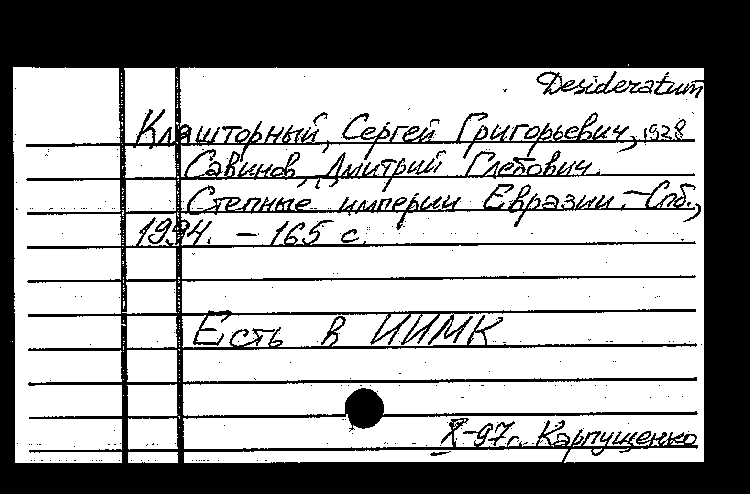 Desideratum
Кляшторный, Сергей Григорьевич, 1928
Савинов, Дмитрий Глебович.
Степные империи Евразии. – Спб.,
1994. – 165 с.
Есть в ИИМК.
X-97г. Карпущенко